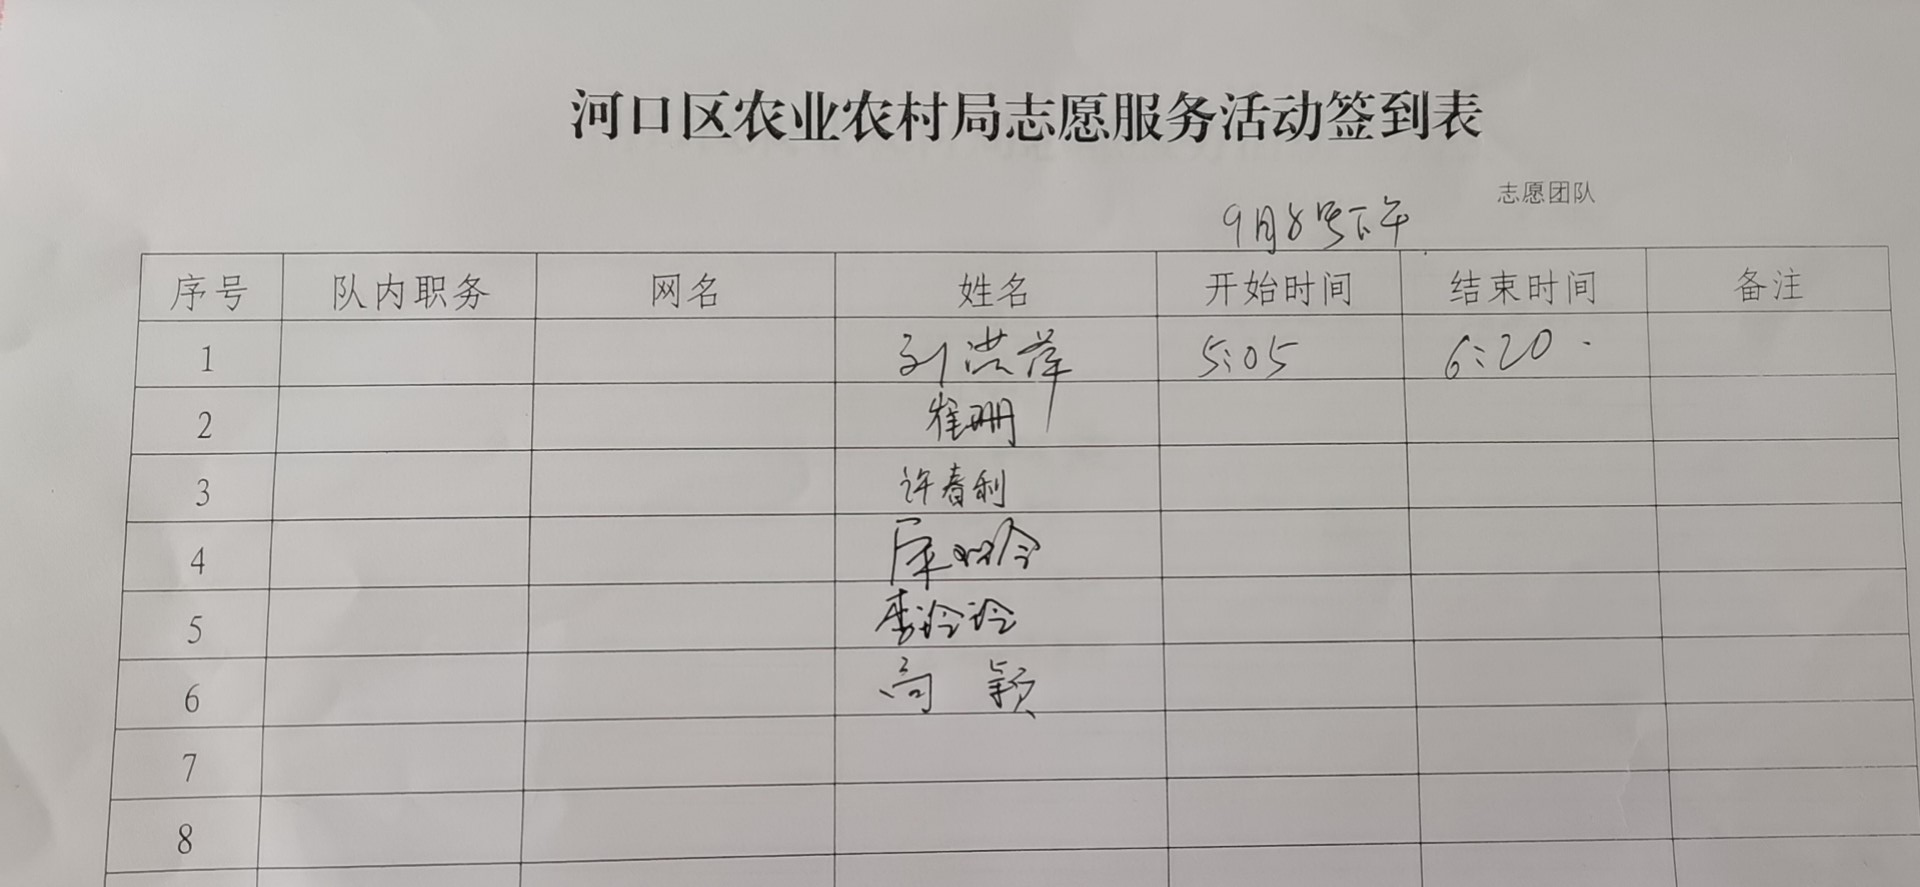 河口区农业农村局志愿服务活动签到表
志愿团队
9月8号下午
序号 队内职务 网名 姓名 开始时间 结束时间 备注
1 刘洪萍 5:05 6:20
2 崔珊
3 许春利
4
5 李玲玲
6 高颖
7
8